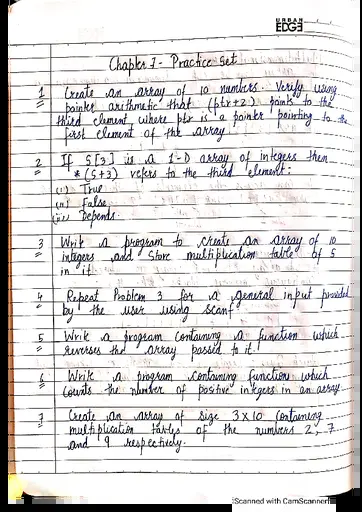 URBAN
EDGE
Chapter 7 - Practice Set
1 Create an array of 10 numbers. Verify using
pointer arithmetic that (ptr+2) points to the
third element where ptr is a pointer pointing to the
first element of the array.
2 If S[3] is a 1-D array of integers then
*(S+3) refers to the third element:
(i) True
(ii) False
(iii) Depends.
3 Write a program to create an array of 10
integers and store multiplication table of 5
in it.
4 Repeat Problem 3 for a general input provided
by the user using scanf.
5 Write a program containing a function which
reverses the array passed to it.
6 Write a program containing function which
counts the number of positive integers in an array.
7 Create an array of size 3x10 containing
multiplication tables of the numbers 2, 7
and 9 respectively.
Scanned with CamScanner